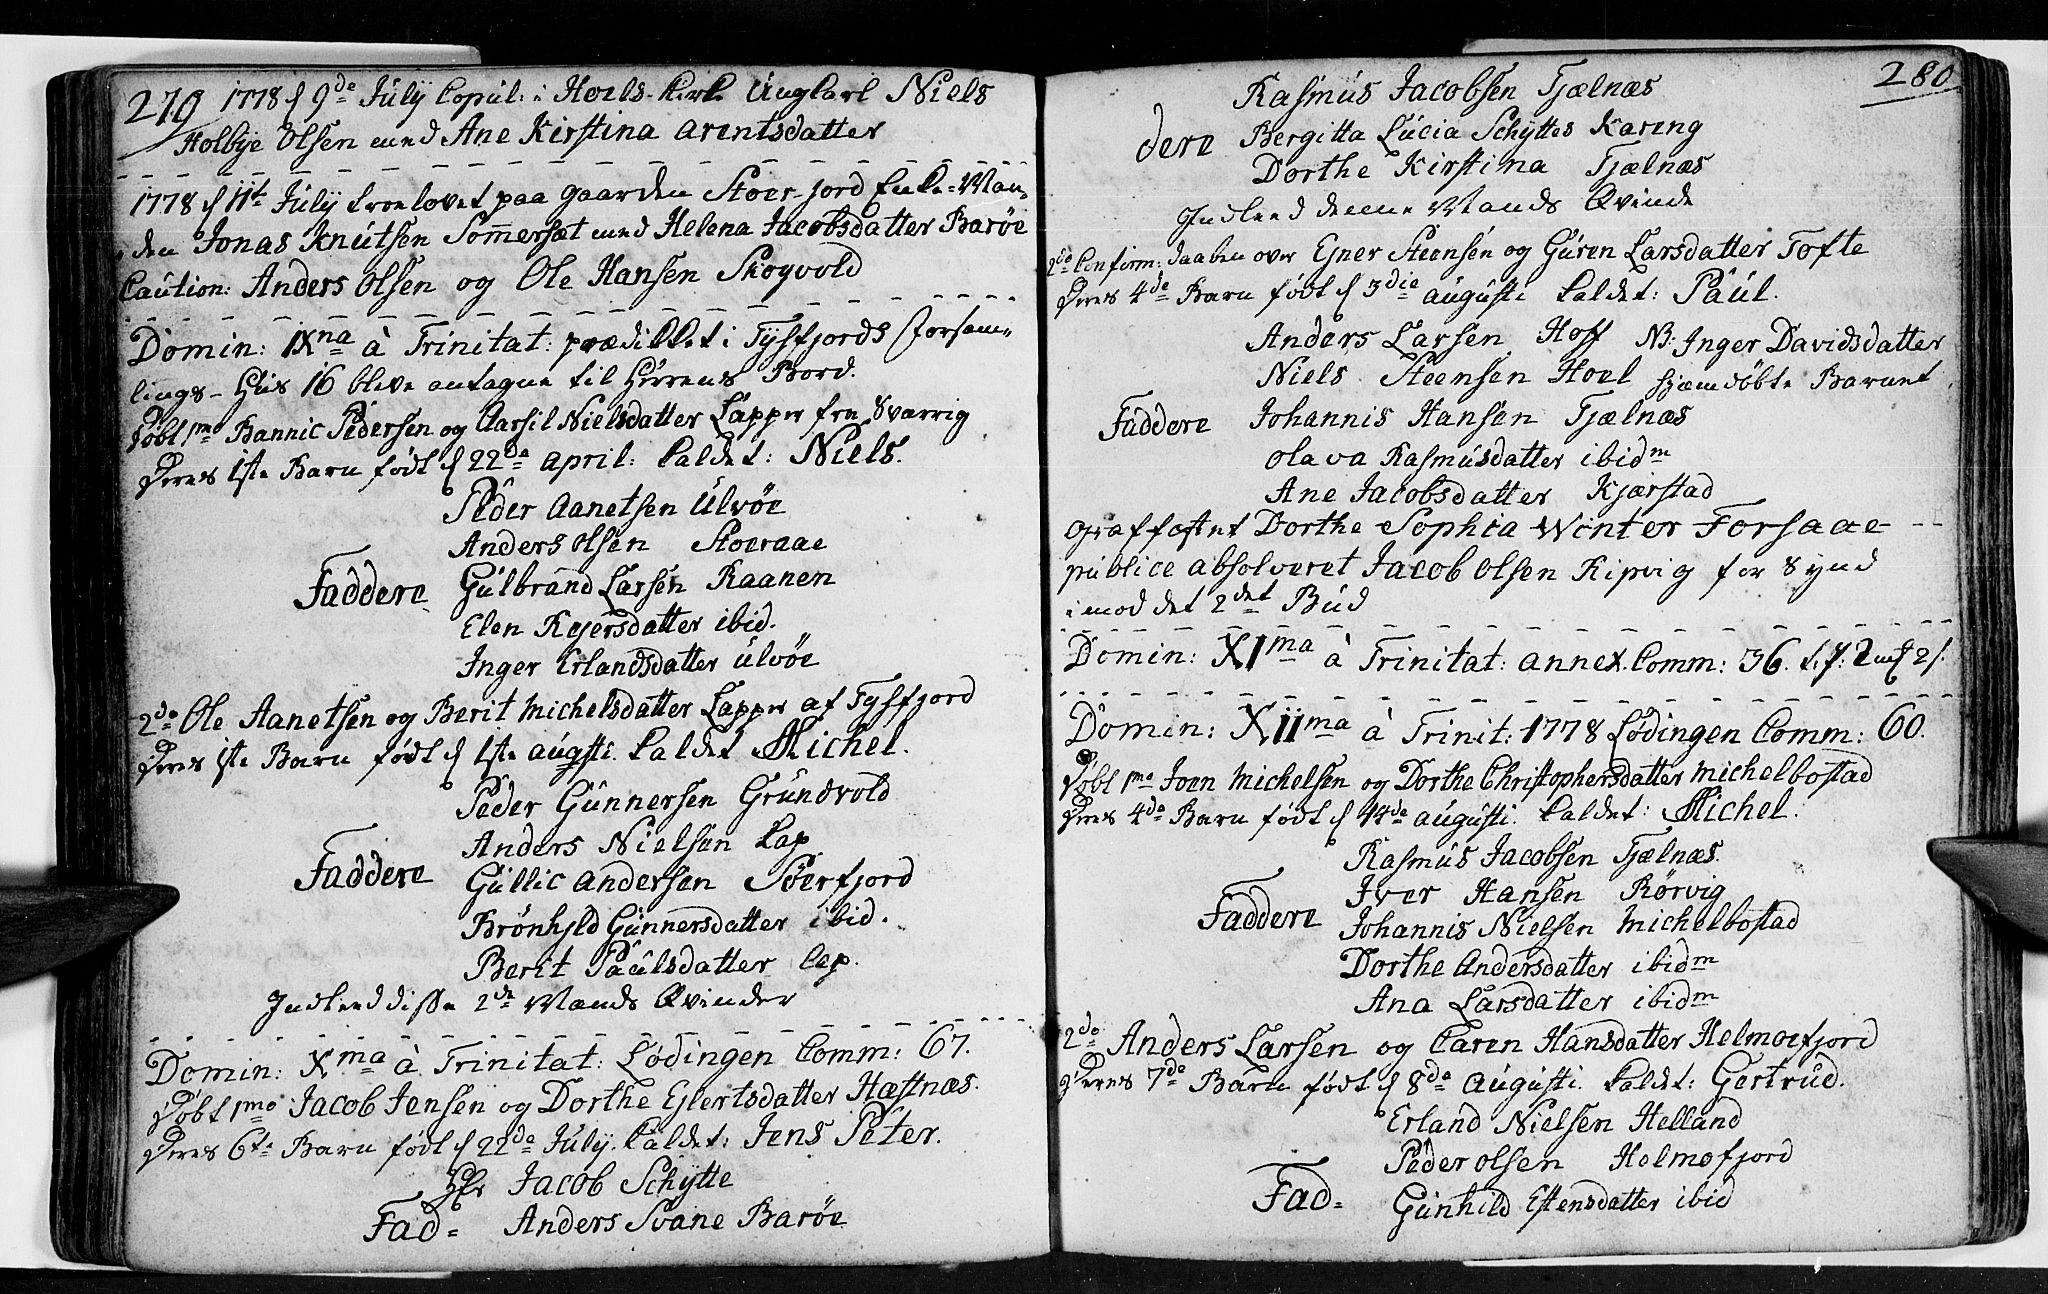 279 1778 d 9de Julÿ Copul: i Hoels-Kirke Ungkarl Niels
Holbye Olsen med Ane Kirstina Arentsdatter
1778 d 11te Julÿ troelovet paa gaarden Stoer-fjord Enke-Man-
den Jonas Knutsen Som̄ersæt med Helena Jacobsdatter Barøe
Caution: Anders Olsen og Ole Hansen Skogvold
Domin: IXna à Trinitat: prædikket i Tysfjords Forsam-
lings-Huus 16 bleve antagne til HErrens Bord.
Døbt 1mo Bannic Pedersen og Aarsil Nielsdatter Lapper fra Sværrig
Deres 1ste Barn født d 22de April: kaldet: Niels.
Peder Aanetsen Ulvøe
Anders Olsen Stoeraae
Faddere Gulbrand Larsen Raanen
Elen Kejersdatter ibid.
Inger Erlandsdatter Ulvøe
2do Ole Aanetsen og Berit Michelsdatter Lapper af Tysfjord
Deres 1ste Barn født d 1ste Augsti kaldet Michel.
Peder Gunnersen Grundvold
Anders Nielsen Lap
Faddere Gullic Andersen Sörfjord
Brönhyld Gunnersdatter ibid.
Berit Paulsdatter Lap.
Indleed disse 2de Mands Qvinder
Domin: Xma à Trinitat: Lødingen Comm: 67.
Døbt 1mo Jacob Jensen og Dorthe Ejlertsdatter Hæstnæs.
Deres 6te Barn født d 22de Julÿ. kaldet: Jens Peter.
Hr Jacob Schytte
Fad= Anders Svane Barøe
280
Rasmus Jacobsen Tjælnæs
dere Bergitta Lucia Schyttes Karing
Dorthe Kirstina Tjælnæs
Indleed denne Mands Qvinde
2do Confirm: Daaben over Ejner Steensen og Guren Larsdatter Tofte
Deres 4de Barn født d 3die Augusti kaldet: Paul.
Anders Larsen Hoff NB: Inger Davidsdatter
Niels Steensen Hoel hjemdøbte Barnet
Faddere Johannis Hansen Tjælnæs
Olava Rasmusdatter ibidm
Ane Jacobsdatter Kjærstad
Graffæstet Dorthe Sophia Winter Forsaae
publice absolveret Jacob Olsen Ripvig for Synd
imod det 2det Bud
Domin: XIma à Trinitat: annex. Comm: 36.
Domin: XIIma à Trinit: 1778 Lødingen Comm: 60.
Døbt 1mo Joen Michelsen og Dorthe Christophersdatter Michelbostad
Deres 4de Barn født d 14de Augusti. kaldet: Michel.
Rasmus Jacobsen Tjælnæs.
Iver Hansen Rørvig
Faddere Johannis Nielsen Michelbostad
Dorthe Andersdatter ibidm
Ana Larsdatter ibidm
2do Anders Larsen og Caren Hansdatter Helmoefjord
Deres 7de Barn født d 8de Augusti. kaldet: Gertrud.
Erland Nielsen Helland
Peder Olsen Helmofjord
Fad= Gunhild Estensdatter ibid